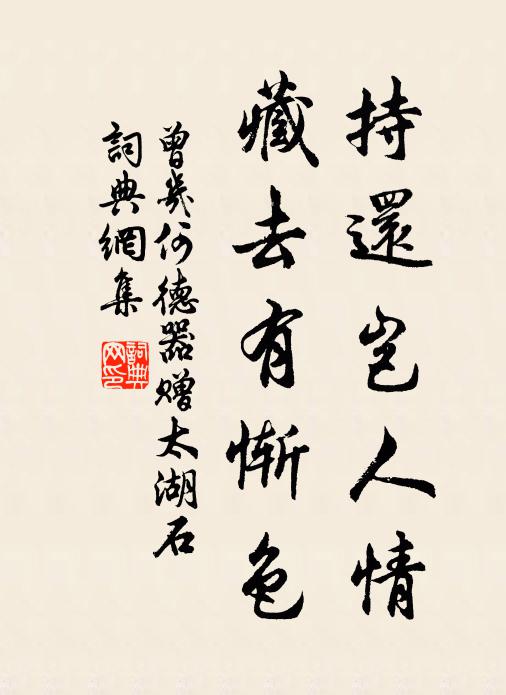 持還豈人情
藏去有慚色
曾幾何德器贈太湖石
詞典網集
詞典網印